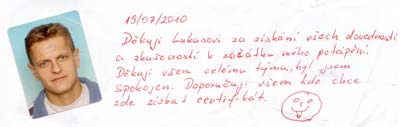 15/07/2010
Děkuji Lukasovi za získání všech dovedností
a zkušeností k začátku mého potápění.
Děkuji všem celému týmu, byl jsem
spokojen. Doporučuji všem kdo chce
zde získat certifikát.